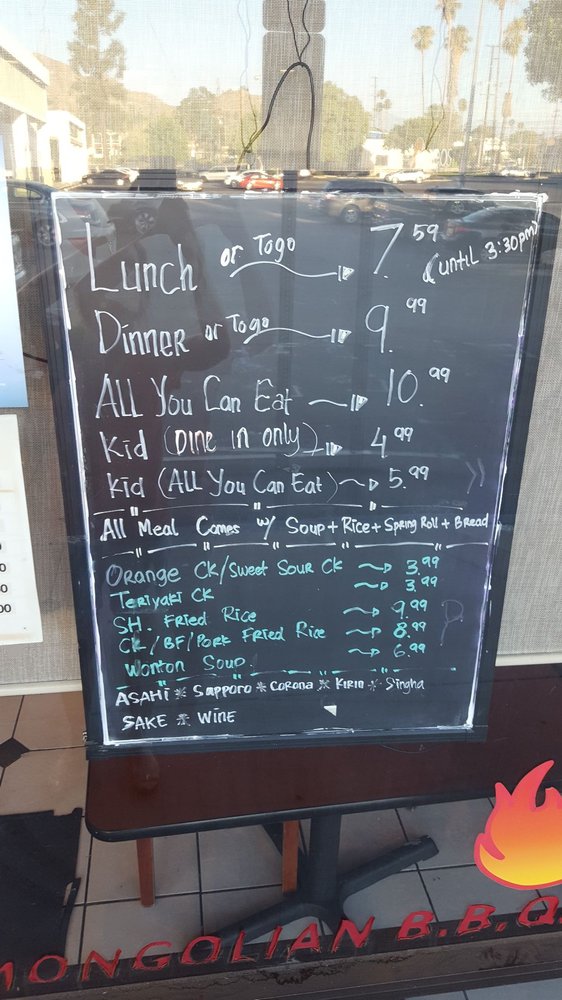 Lunch or Togo 7.59 (until 3:30pm)
Dinner or Togo 9.99
All You Can Eat 10.99
Kid (Dine in only) 4.99
Kid (All You Can Eat) 5.99
All Meal Comes w/ Soup + Rice + Spring Roll + Bread
Orange Ck/Sweet Sour Ck 3.99
Teriyaki Ck 3.99
SH. Fried Rice 9.99
Ck/BF/Pork Fried Rice 8.99
Wonton Soup 6.99
Asahi * Sapporo * Corona * Kirin * Singha
Sake * Wine
MONGOLIAN B.B.Q.